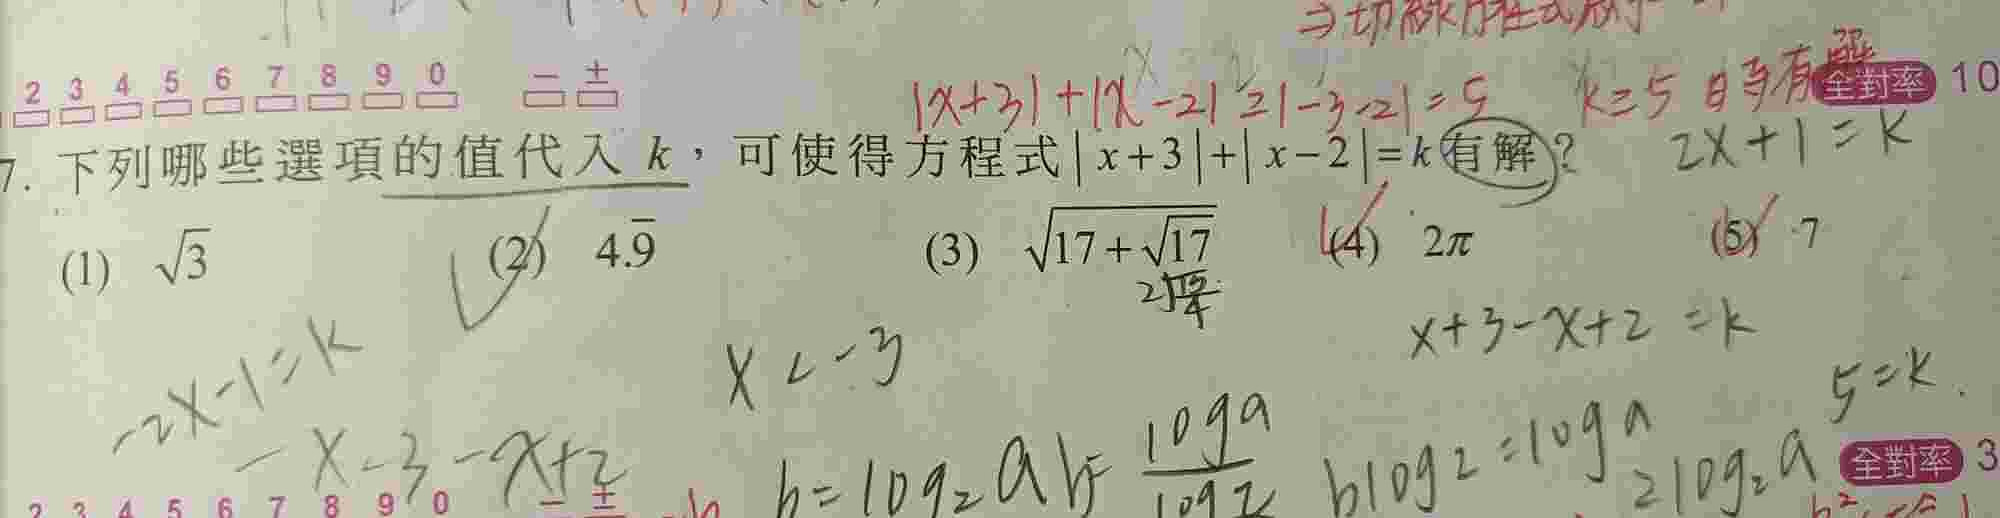 ⇒切線方程式
2 3 4 5 6 7 8 9 0 − ±
|x+3|+|x-2|≥|-3-2|=5 k≥5時有解 全對率 10
7. 下列哪些選項的值代入 k，可使得方程式|x+3|+|x−2|=k有解? 2x+1=k
(1) √3 (2) 4.9̅ (3) √(17+√17) (4) 2π (5) 7
-2x-1=k x<-3 x+3-x+2=k
-x-3-x+2 5=k
b=log₂a b=loga/log2 blog2=loga 2log₂a 全對率 3
2 3 4 5 6 7 8 9 0 − ±